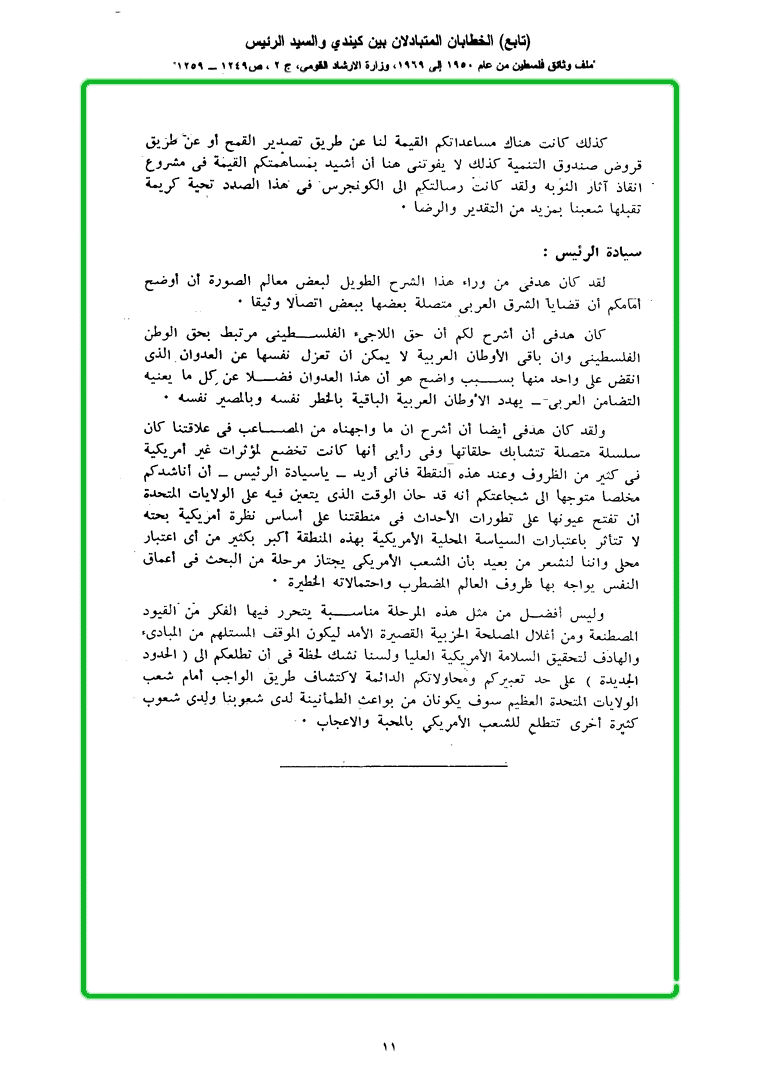 (تابع) الخطابان المتبادلان بين كيندي والسيد الرئيس
"ملف وثائق فلسطين من عام ١٩٥٠ إلى ١٩٦٩، وزارة الارشاد القومى، ج ٢ ، ص١٢٤٩ – ١٢٥٩"
كذلك كانت هناك مساعداتكم القيمة لنا عن طريق تصدير القمح أو عن طريق
قروض صندوق التنمية كذلك لا يفوتنى هنا أن أشيد بمساهمتكم القيمة فى مشروع
انقاذ آثار النوبه ولقد كانت رسالتكم الى الكونجرس فى هذا الصدد تحية كريمة
تقبلها شعبنا بمزيد من التقدير والرضا ٠
سيادة الرئيس :
لقد كان هدفى من وراء هذا الشرح الطويل لبعض معالم الصورة أن أوضح
أمامكم أن قضايا الشرق العربى متصلة بعضها ببعض اتصالا وثيقا ٠
كان هدفى أن أشرح لكم أن حق اللاجىء الفلسـطينى مرتبط بحق الوطن
الفلسطينى وان باقى الأوطان العربية لا يمكن ان تعزل نفسها عن العدوان الذى
انقض على واحد منها بسـبب واضح هو أن هذا العدوان فضـلا عن كل ما يعنيه
التضامن العربى – يهدد الأوطان العربية الباقية بالخطر نفسه وبالمصير نفسه ٠
ولقد كان هدفى أيضا أن أشرح ان ما واجهناه من المصـاعب فى علاقتنا كان
سلسلة متصلة تتشابك حلقاتها وفى رأيى أنها كانت تخضع لمؤثرات غير أمريكية
فى كثير من الظروف وعند هذه النقطة فانى أريد – ياسيادة الرئيس – أن أناشدكم
مخلصا متوجها الى شجاعتكم أنه قد حان الوقت الذى يتعين فيه على الولايات المتحدة
أن تفتح عيونها على تطورات الأحداث فى منطقتنا على أساس نظرة أمريكية بحته
لا تتأثر باعتبارات السياسة المحلية الأمريكية بهذه المنطقة أكبر بكثير من أى اعتبار
محلى واننا لنشعر من بعيد بأن الشعب الأمريكى يجتاز مرحلة من البحث فى أعماق
النفس يواجه بها ظروف العالم المضطرب واحتمالاته الخطيرة ٠
وليس أفضـل من مثل هذه المرحلة مناسـبة يتحرر فيها الفكر من القيود
المصطنعة ومن أغلال المصلحة الحزبية القصيرة الأمد ليكون الموقف المستلهم من المبادىء
والهادف لتحقيق السلامة الأمريكية العليا ولسنا نشك لحظة فى أن تطلعكم الى ( الحدود
الجديدة ) على حد تعبيركم ومحاولاتكم الدائمة لاكتشاف طريق الواجب أمام شعب
الولايات المتحدة العظيم سوف يكونان من بواعث الطمأنينة لدى شعوبنا ولدى شعوب
كثيرة أخرى تتطلع للشعب الأمريكي بالمحبة والاعجاب ٠
١١